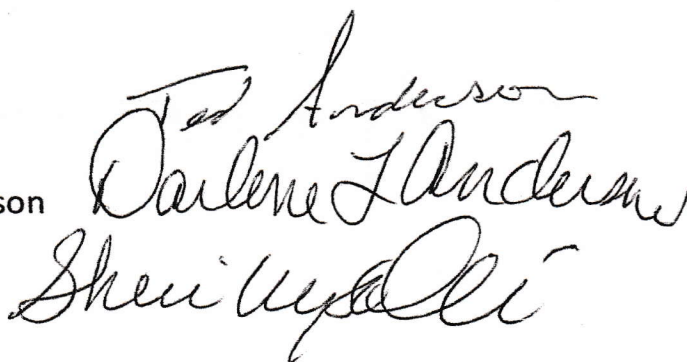 Ted Anderson
son Darlene L Anderson
Sheri